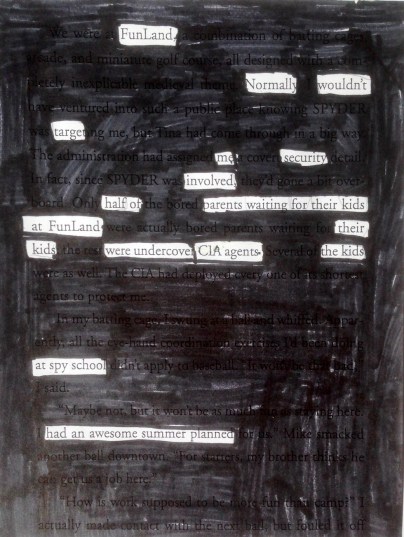 We were at FunLand, a combination of batting cages,
arcade, and miniature golf course, all designed with a com-
pletely inexplicable medieval theme. Normally, I wouldn't
have ventured into such a public place knowing SPYDER
was targeting me, but Tina had come through in a big way.
The administration had assigned me a covert security detail.
In fact, since SPYDER was involved, they'd gone a bit over-
board. Only half of the bored parents waiting for their kids
at FunLand were actually bored parents waiting for their
kids; the rest were undercover CIA agents. Several of the kids
were as well. The CIA had deployed every one of its shortest
agents to protect me.
In my batting cage, I swung at a ball and whiffed.
all the eye-hand coordination
at spy school didn't apply to baseball."
I said.
"Maybe not, but it won't be as much fun as staying here.
I had an awesome summer planned for us." Mike smacked
another ball downtown. "For starters, my brother thinks he
can get us a job here."
"How is work supposed to be more fun than camp?" I
actually made contact with the next ball, but fouled it off